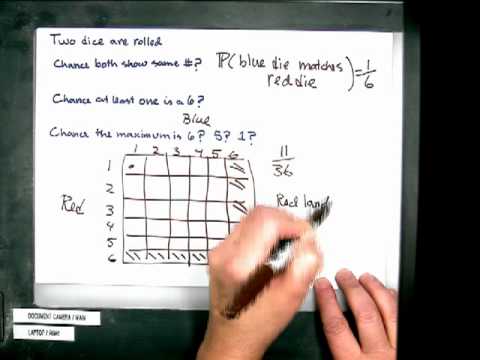 Two dice are rolled
Chance both show same #? P(blue die matches red die) = 1/6
Chance at least one is a 6?
Blue
Chance the maximum is 6? 5? 1?
1 2 3 4 5 6
1
2
3
4
5
6
Red
11/36
Red
DOCUMENT CAMERA / MAIN
LAPTOP /